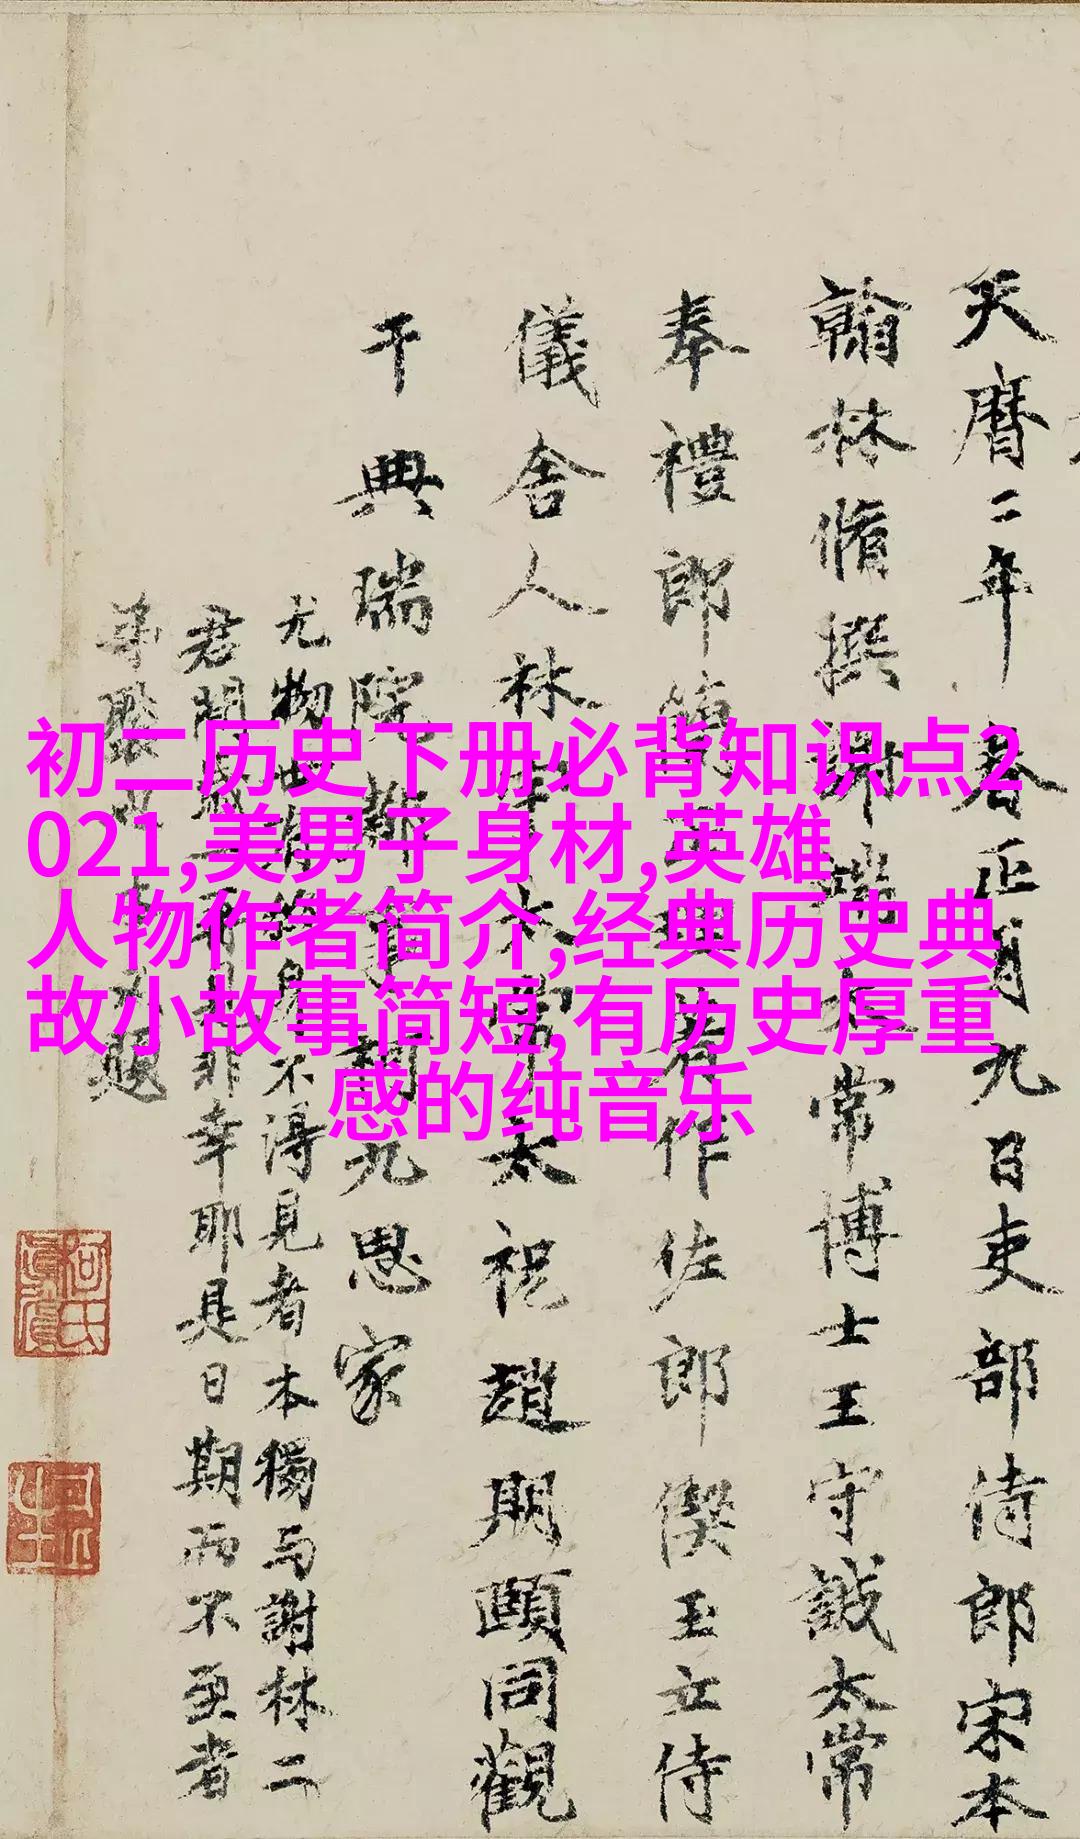 天曆二年春正月九日吏部侍郎宋本
翰林脩撰謝端太常博士王守誠太常
奉禮郎簡正理著作佐郎偰玉立侍
儀舍人林宇太常太祝趙期頤同觀
于典瑞院都事柯九思家
尤物世惟恐不得見者本獨与謝林二
君閒
非幸耶是日期而不至者
題
初二历史下册必背知识点2
021,美男子身材,英雄
人物作者简介,经典历史典
故小故事简短,有历史厚重
感的纯音乐